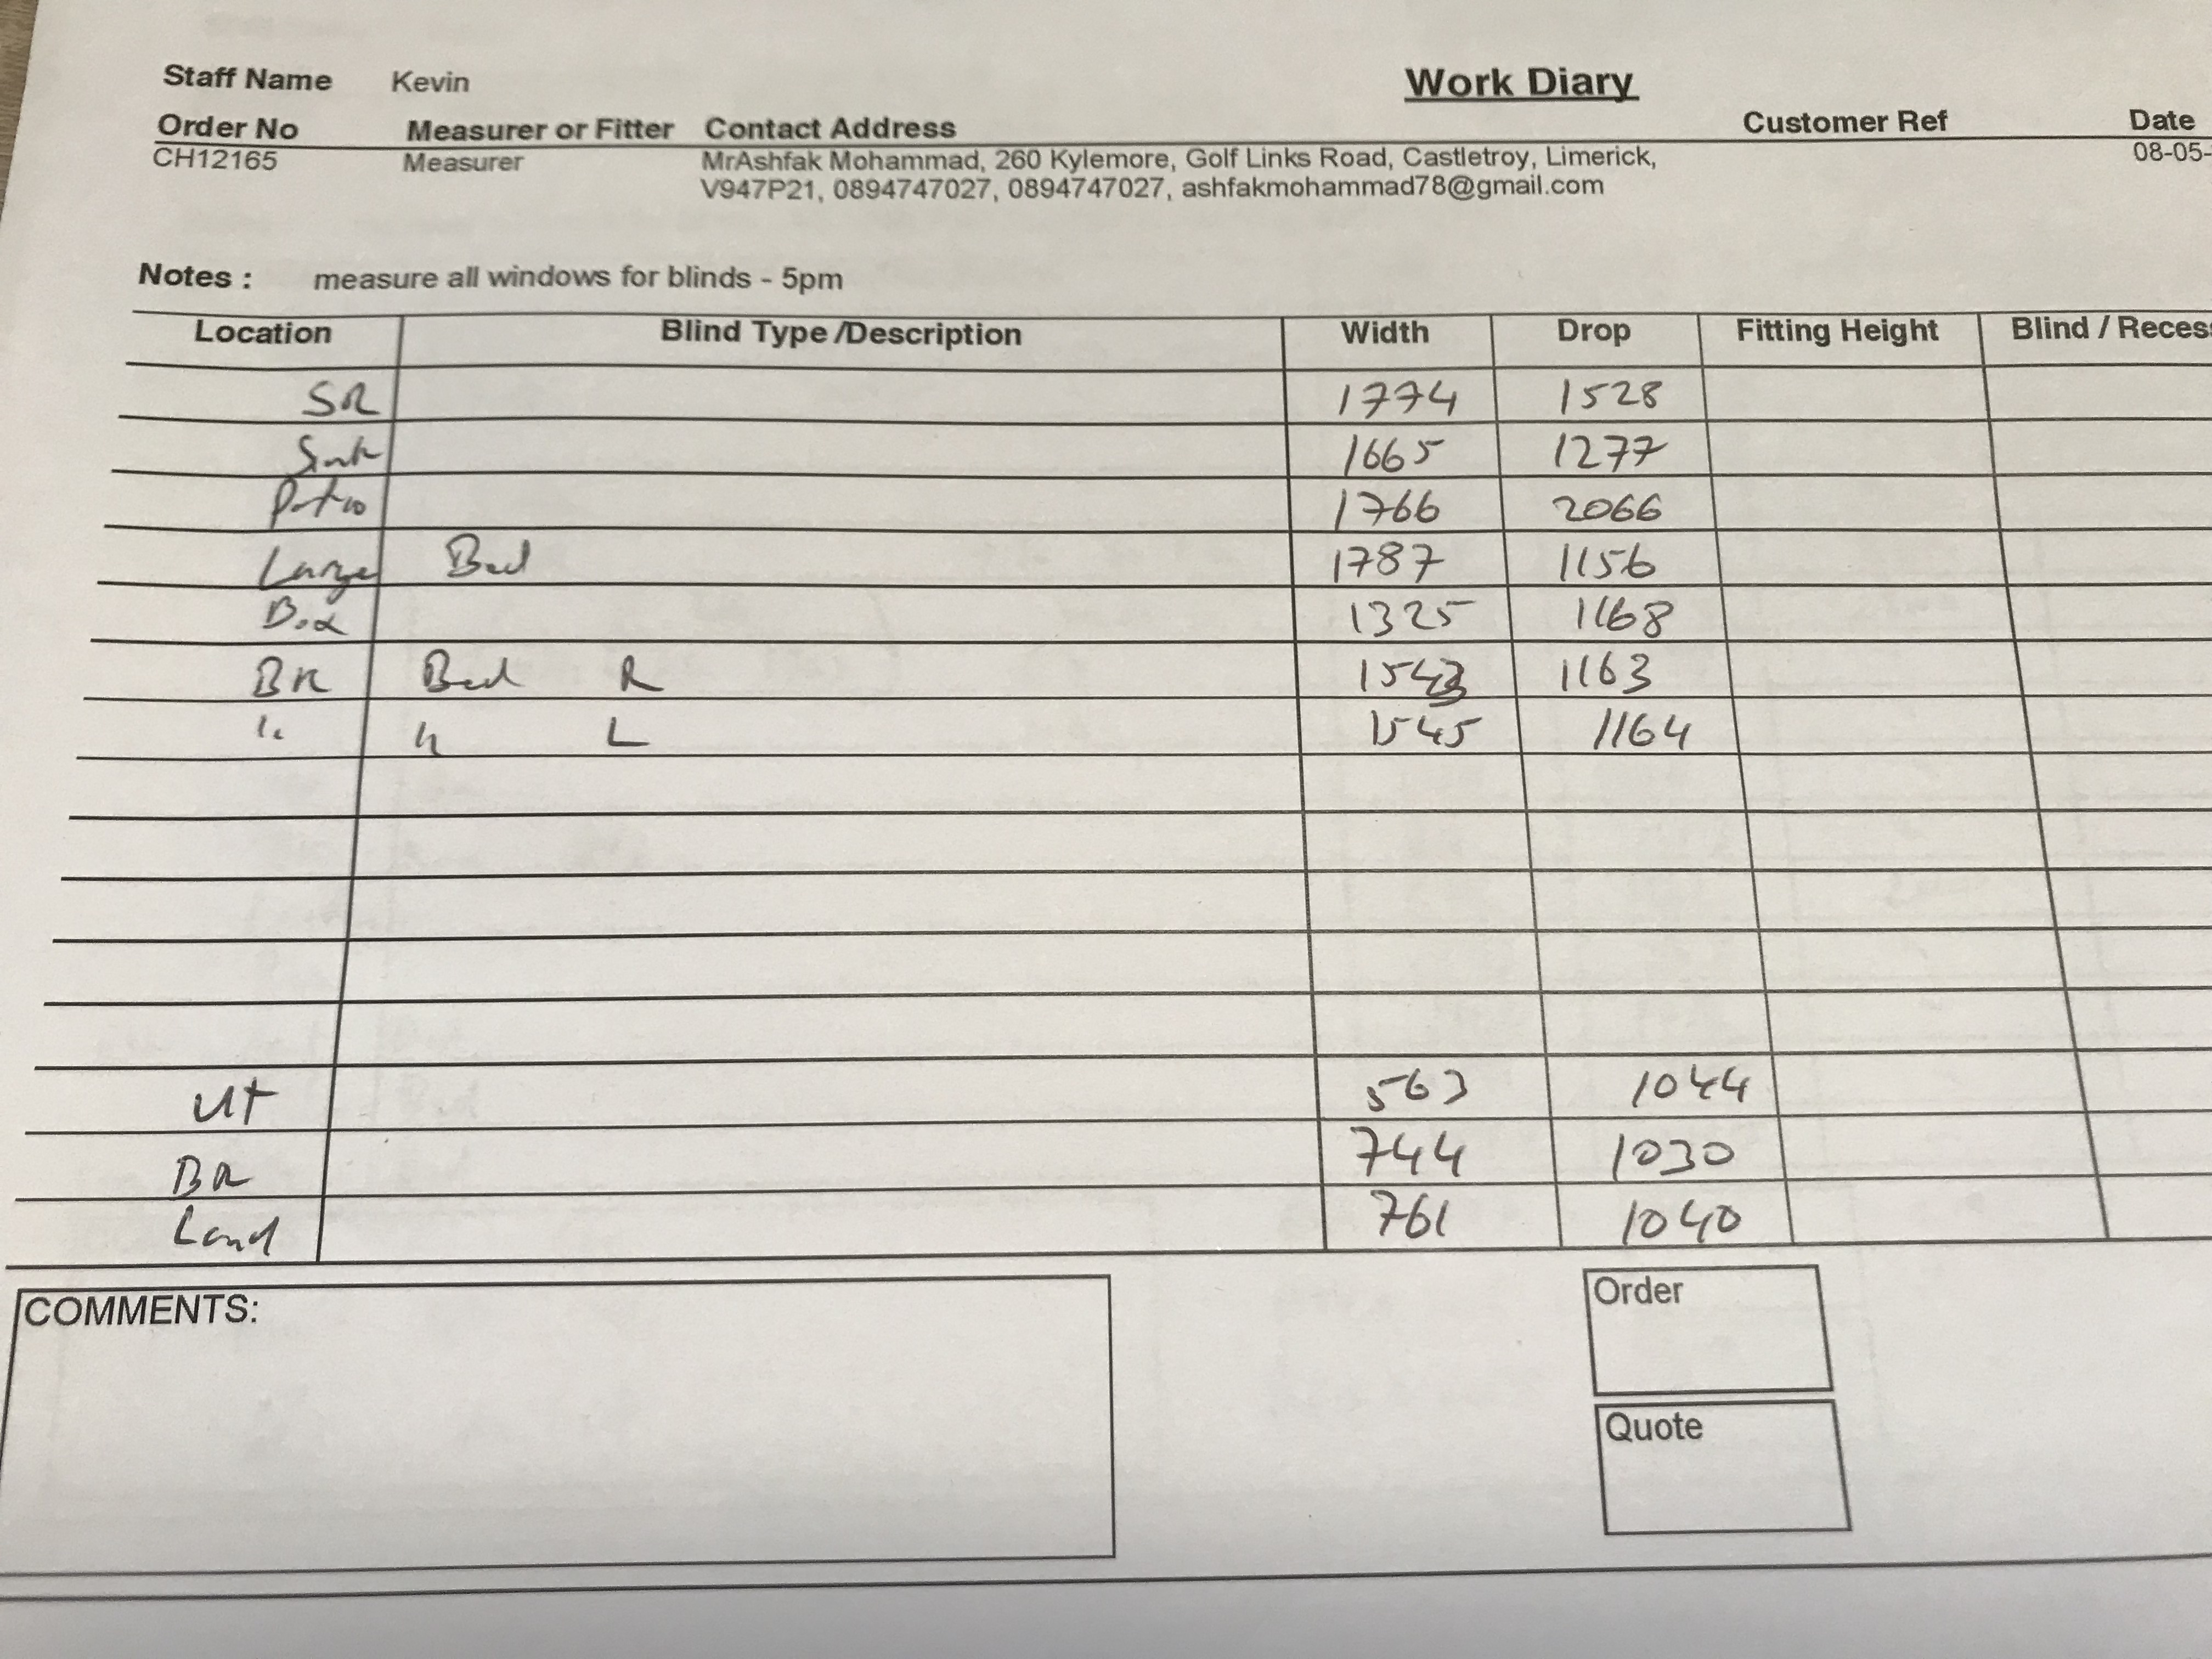 Staff Name Kevin Work Diary
Order No Measurer or Fitter Contact Address Customer Ref Date
CH12165 Measurer MrAshfak Mohammad, 260 Kylemore, Golf Links Road, Castletroy, Limerick, 08-05-
V947P21, 0894747027, 0894747027, ashfakmohammad78@gmail.com
Notes : measure all windows for blinds - 5pm
Location Blind Type /Description Width Drop Fitting Height Blind / Recess
SR 1774 1528
Sink 1665 1277
Patio 1766 2066
Large Bed 1787 1156
Box 1325 1168
BK Bed R 1163
" " L 1545 1164
Ut 563 1044
BR 744 1030
Land 761 1040
COMMENTS:
Order
Quote